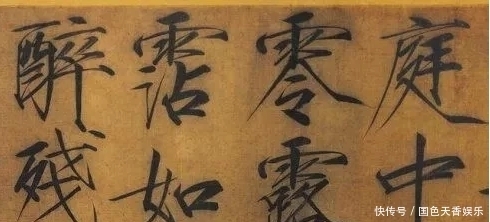 庭中
零露
霑如
醉殘
快传号 / 国色天香娱乐